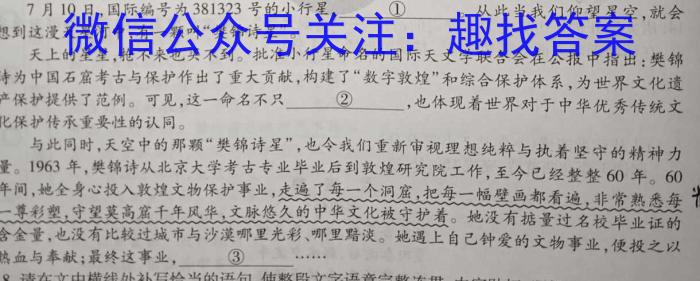 7月10日,国际编号为381323号的小行星 ① 从此当我们仰望星空,就会
想到这漫
微信公众号关注：趣找答案
天上的星星,抢不来也买不到。批准小行星命名的国际天文学联合会在公报中指出:樊锦
诗为中国石窟考古与保护作出了重大贡献,构建了“数字敦煌”和综合保护体系,为世界文化遗
产保护提供了范例。可见,这一命名不只 ② ,也体现着世界对于中华优秀传统文
化保护传承重要性的认同。
与此同时,天空中的那颗“樊锦诗星”,也令我们重新审视理想纯粹与执着坚守的精神力
量。1963年,樊锦诗从北京大学考古专业毕业后到敦煌研究院工作,至今已经整整60年。60
年间,她全身心投入敦煌文物保护事业,走遍了每一个洞窟,把每一幅壁画都看遍,非常熟悉每
一尊彩塑,守望莫高窟千年风华,文脉悠久的中华文化被守护着。她没有掂量过名校毕业证的
含金量,也没有比较过城市与沙漠哪里光彩、哪里黯淡。她遇上自己钟爱的文物事业,便投之以
热血与奉献;最终这事业, ③ ……
8.请在文中横线处补写恰当的语句,使整段文字语意完整连贯